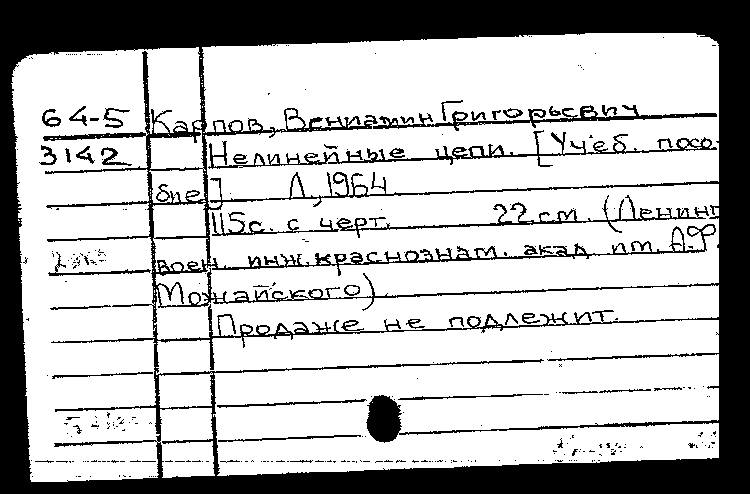 64-5 Карпов, Вениамин Григорьевич
3142 Нелинейные цепи. [Учеб. посо-
бие] Л., 1964
115с. с черт. 22 см. (Ленинг
воен. инж. краснознам. акад им. А.Ф.
Можайского).
Продаже не подлежит.